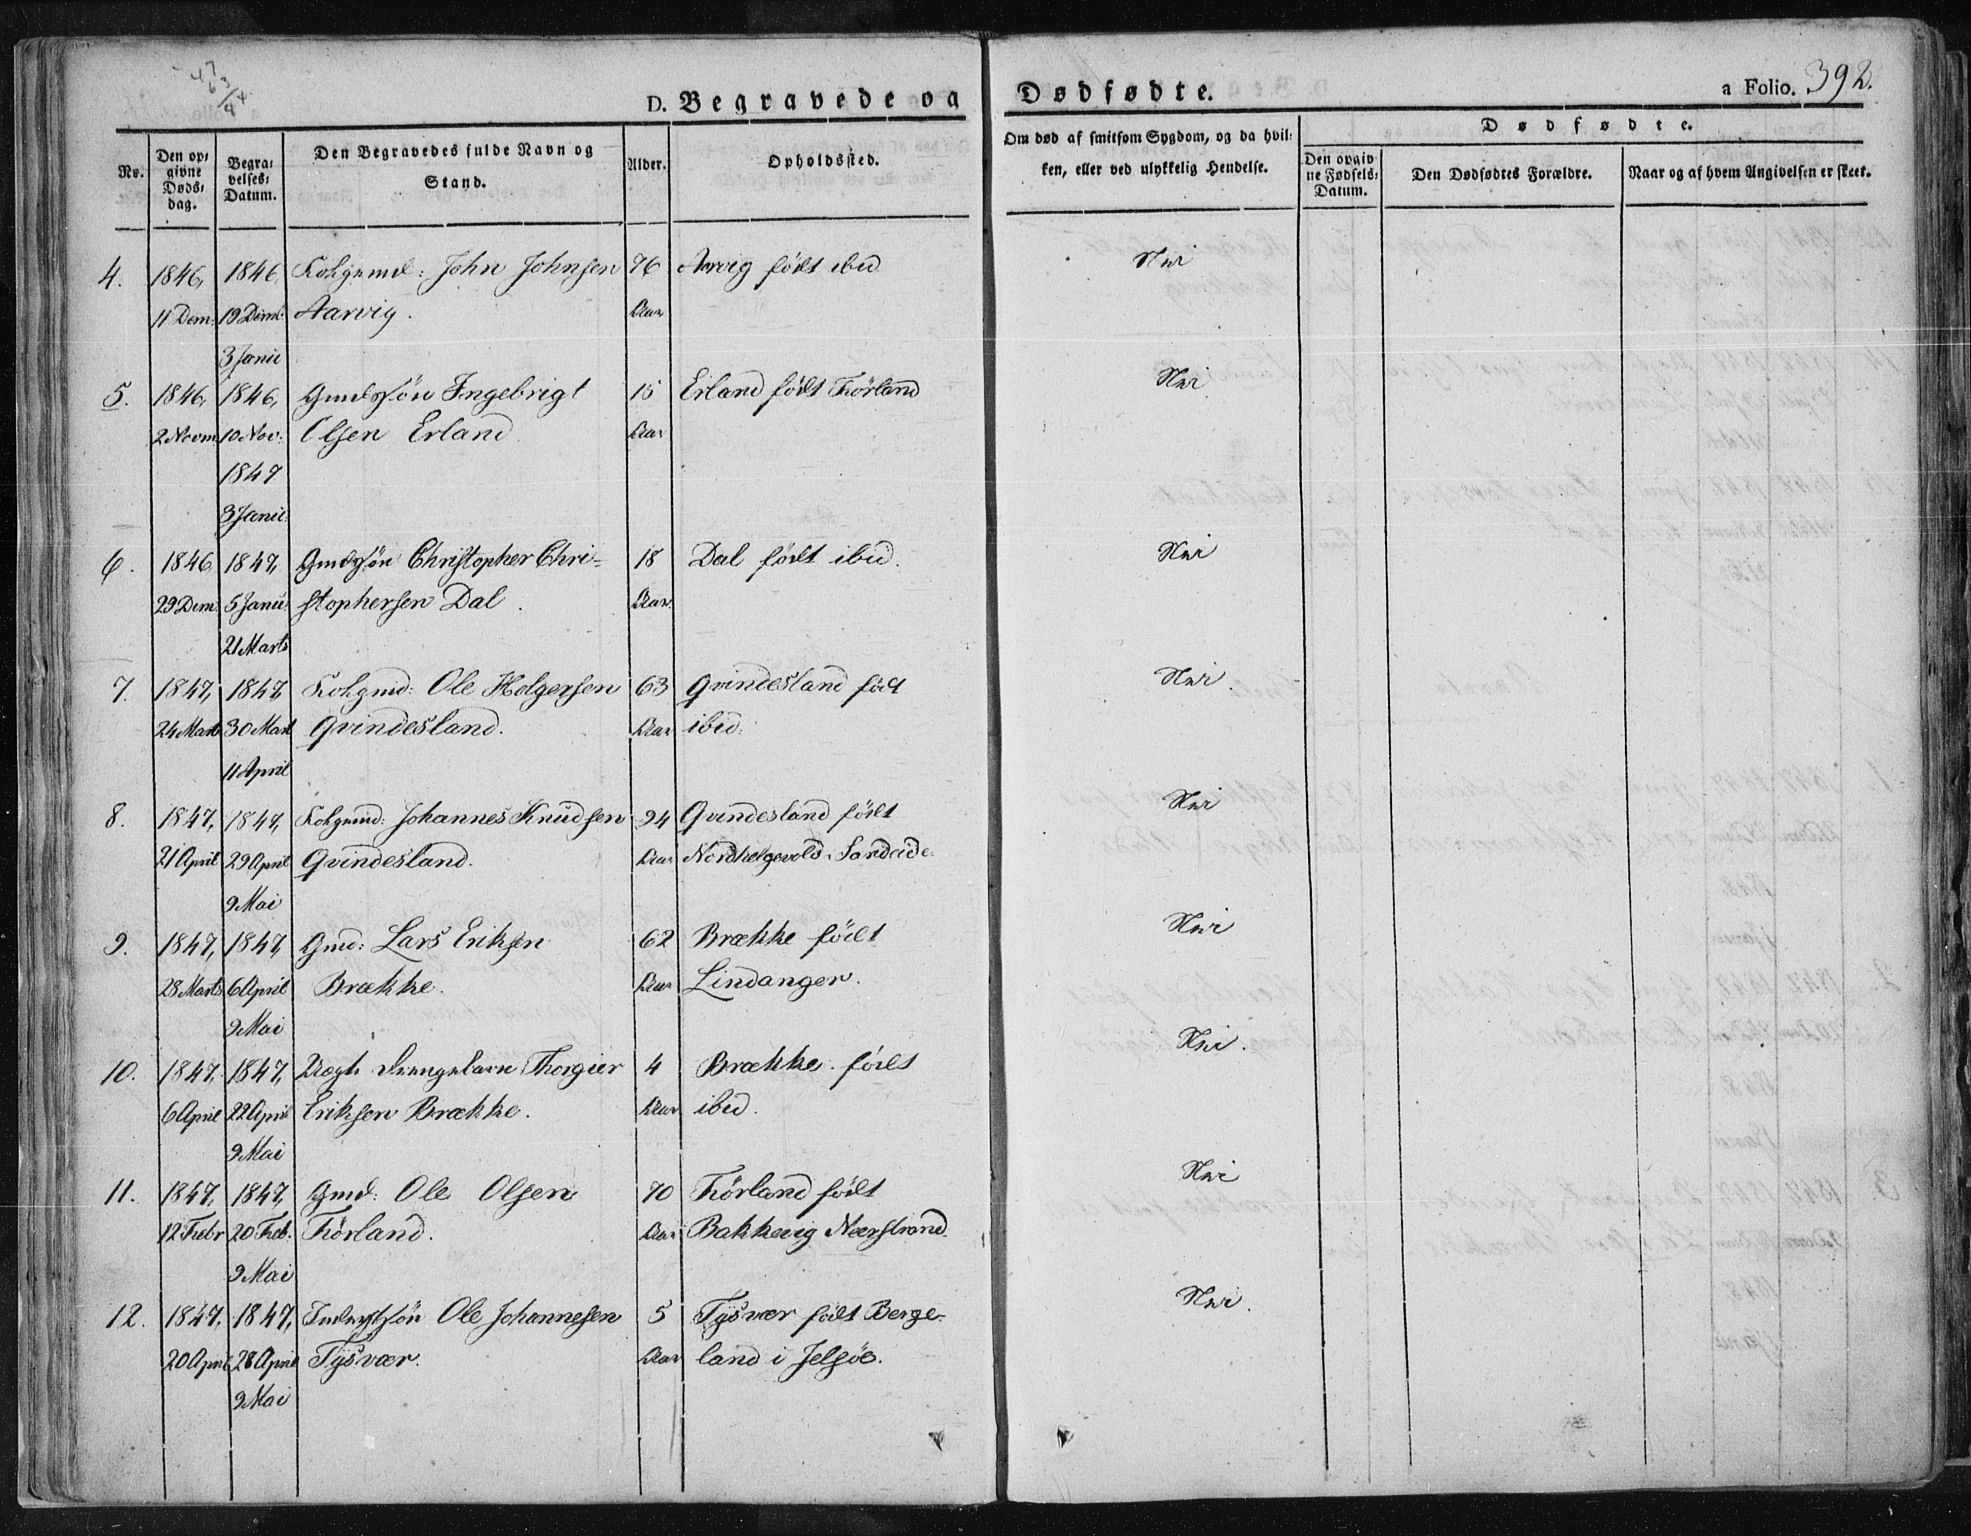 47
63
/44.
D. Begravede og Dødfødte. a Folio. 392.
No.
Den op⸗
givne
Døds⸗
dag.
Begra⸗
velses⸗
Datum.
Den Begravedes fulde Navn og
Stand.
Alder.
Opholdssted.
Om død af smitsom Sygdom, og da hvil⸗
ken, eller ved ulykkelig Hendelse.
Dødfødte.
Den opgiv⸗
ne Fødsels⸗
Datum.
Den Dødfødtes Forældre.
Naar og af hvem Angivelsen er skeet.
4. 1846, 1846 John Johnsen 76 Aarvig født ibid Nei
11 Dem: 19 Dem: Aarvig. Aar
3 Janu
5. 1846, 1846, Gmdssøn Ingebrigt 15 Erland født Förland Nei
2 Novm 10 Nov: Olsen Erland Aar
1847
3 Janu:
6. 1846 1847, Gmdssøn Christopher Chri- 18 Dal født ibid. Nei
29 Dem: 5 Janu: stophersen Dal. Aar.
21 Marts
7. 1847, 1847, Ole Holgersen 63 Qvindesland født Nei.
24 Marts 30 Mart Qvindesland. Aar ibid.
11 April
8. 1847, 1847, Johannes Knudsen 94 Qvindesland født Nei
21 April 29 April Qvindesland. Aar Nordhelgevold i Sandeid
9 Mai
9. 1847, 1847, Gmd: Lars Eriksen 62 Brække født Nei
28 Marts 6 April Brække. Aar Lindanger.
9 Mai
10. 1847, 1847, Drengebarn Thorgier 4 Brække født Nei.
6 April 22 April Eriksen Brække. Aar ibid.
9 Mai
11. 1847, 1847, Gmd: Ole Olsen 70 Förland født Nei
12 Febr 20 Feb. Förland. Aar Bakkevig Nærstrand
9 Mai
12. 1847, 1847, Ole Johannesen 5 Tysvær født Berge- Nei.
20 April 28 April Tysvær. Aar land i Jelsöe.
9 Mai